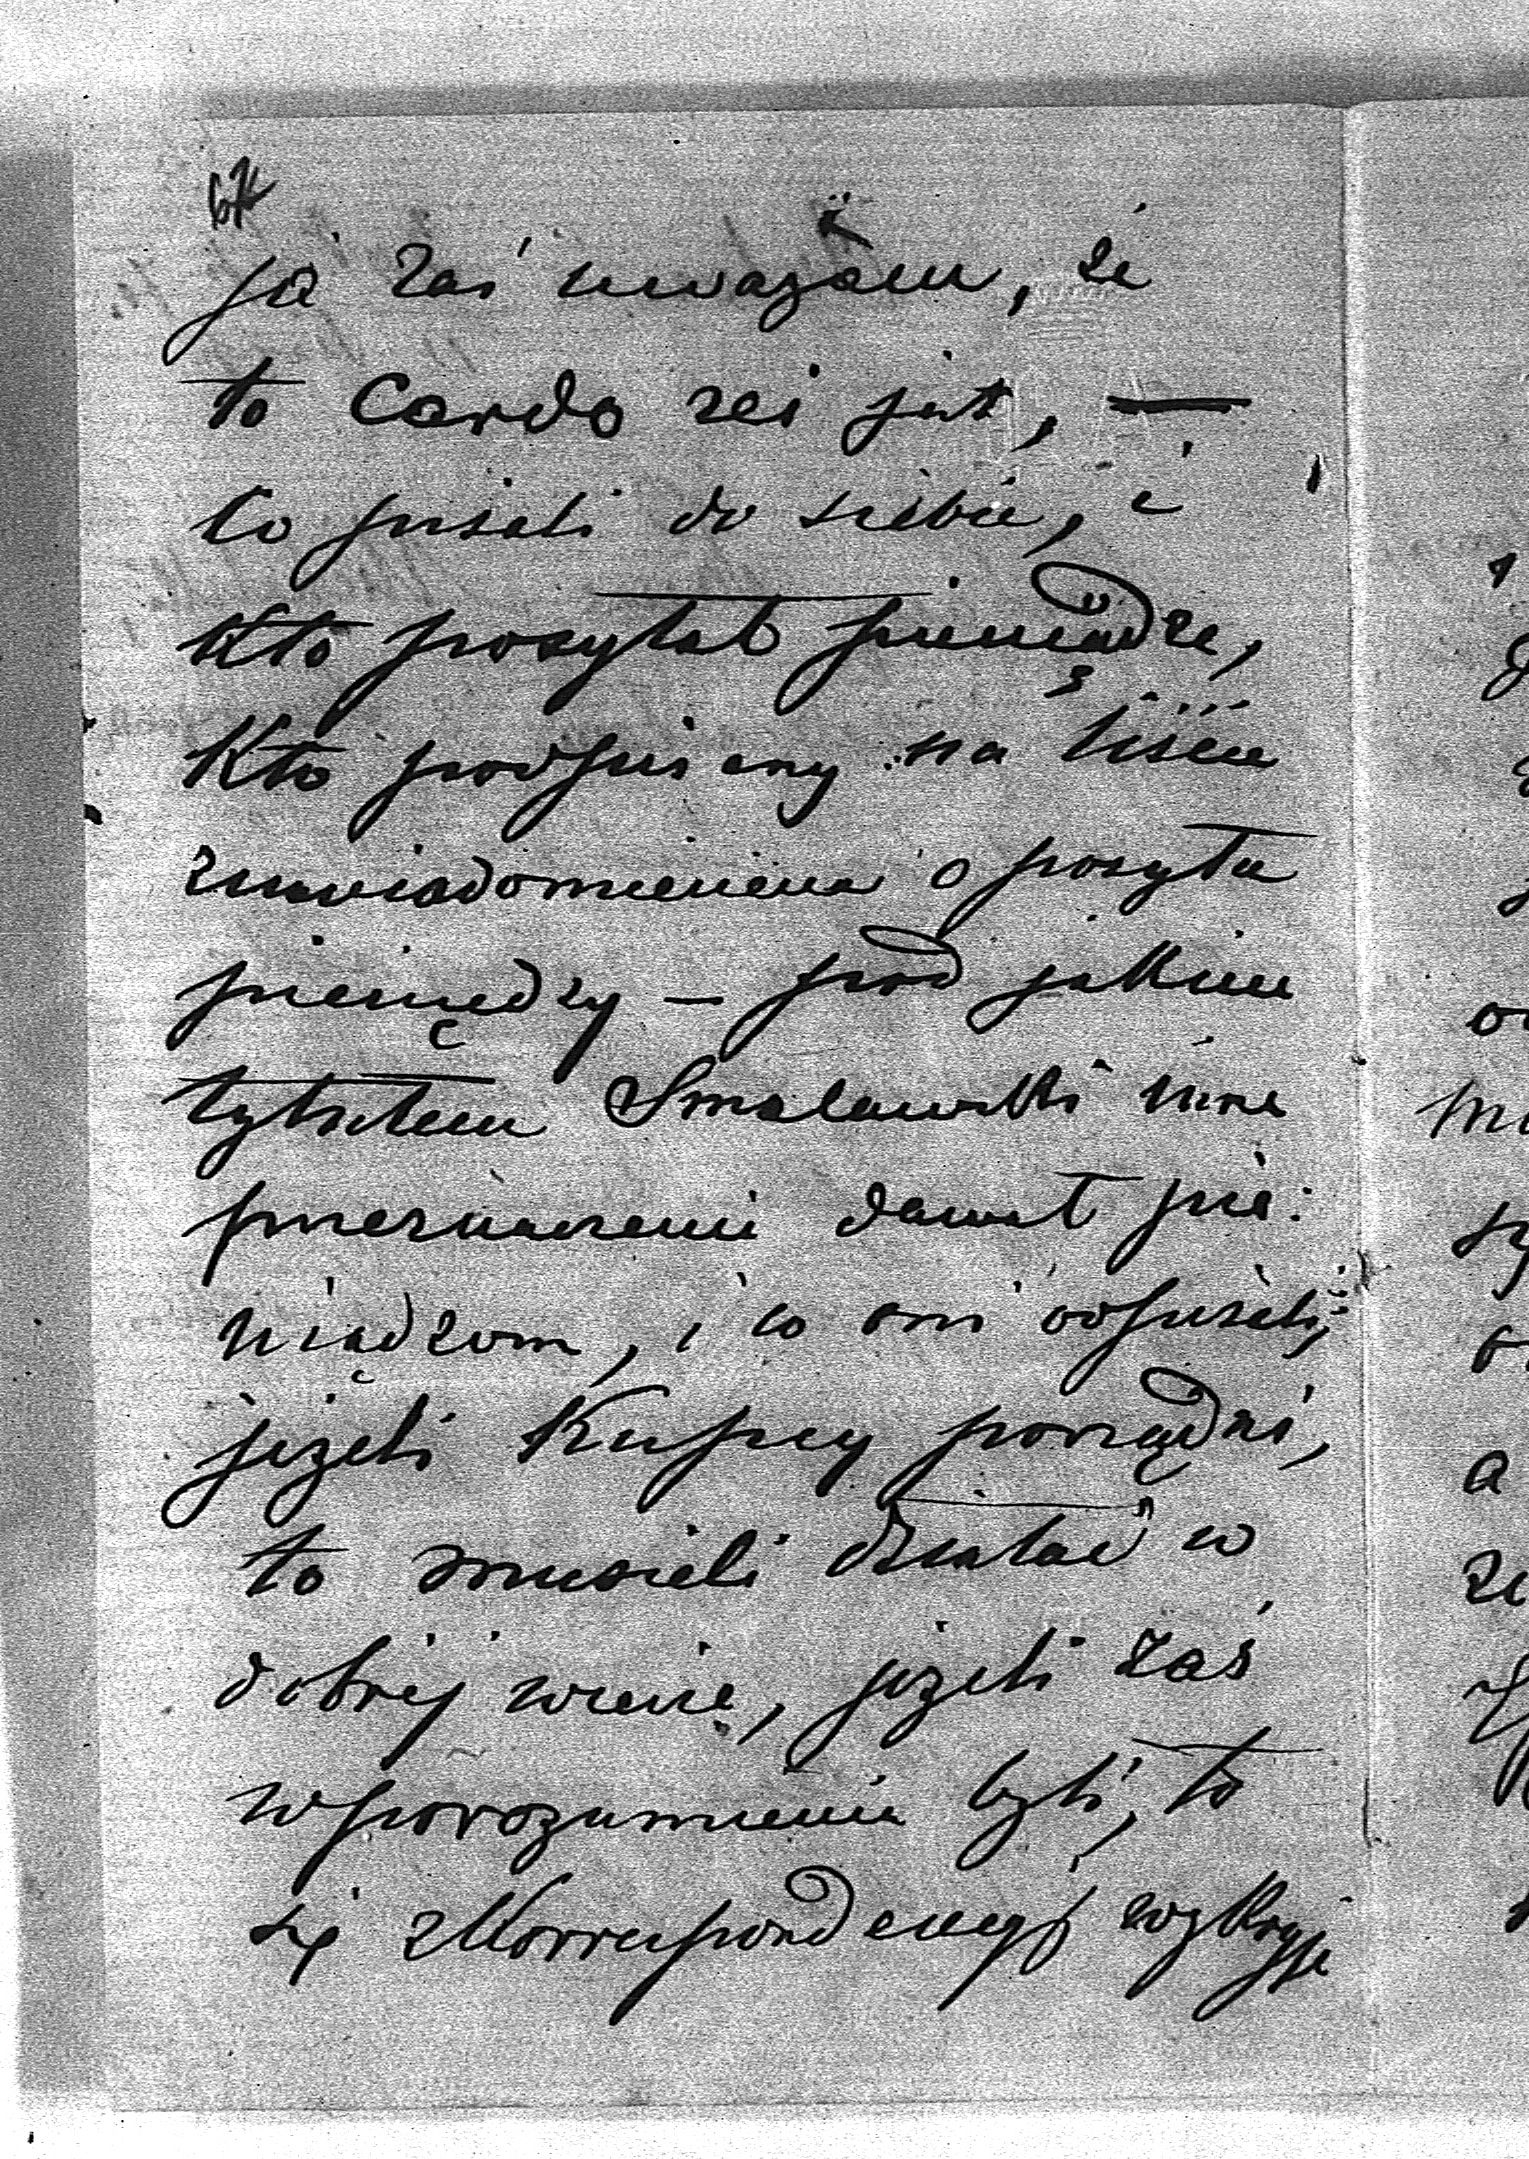 67
ja zaś uważam, że
to Cardo rei jest, —
co pisali do siebie, i
kto posyłał pieniądze,
kto podpisany na liście
zawiadomienia o posyłce
pieniędzy — pod jakim
tytułem Smalawski inne
przeznaczenie dawał pie:
niądzom, i co oni odpisali;
jeżeli Kupcy porządni,
to musieli działać w
dobrej wierze, jeżeli zaś
w porozumieniu byli, to
się z Korrespondencyj wykryje